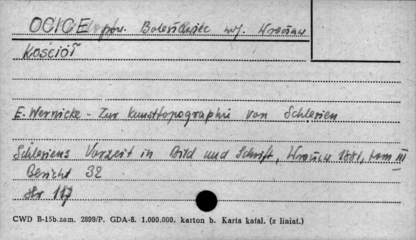 OCICE pow. Bolesławiec woj. Wrocław
Kościół
E. Wernicke - Zur Kunsttopographie von Schlesien
Schlesiens Vorzeit in Bild und Schrift, Wrocław 1881, tom III
Bericht 32
str. 117
CWD B-15b. zam. 2899/P. GDA-8. 1.000.000. karton b. Karta katal. (z liniat.)